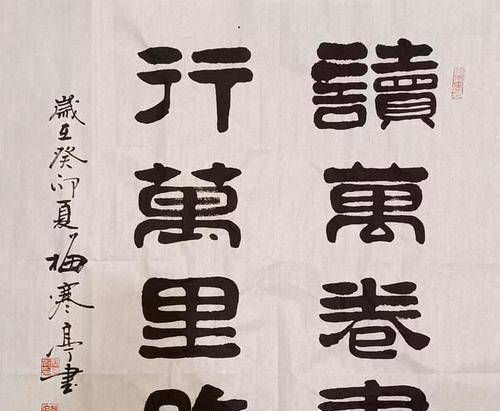 讀萬卷書
行萬里路
歲在癸卯夏梅寒亭書